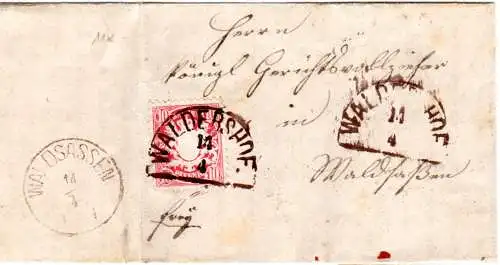 Herrn
Königl Gerichtsvollzieher
in
Waldsaßen
frey
WALDERSHOF.
11
4
WALDERSHOF.
11
4
WALDSASSEN
10
10